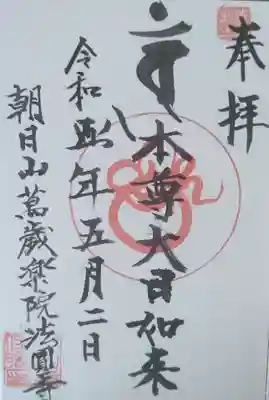 奉拝
本尊大日如来
令和五年五月二日
朝日山萬歳樂院法圓寺